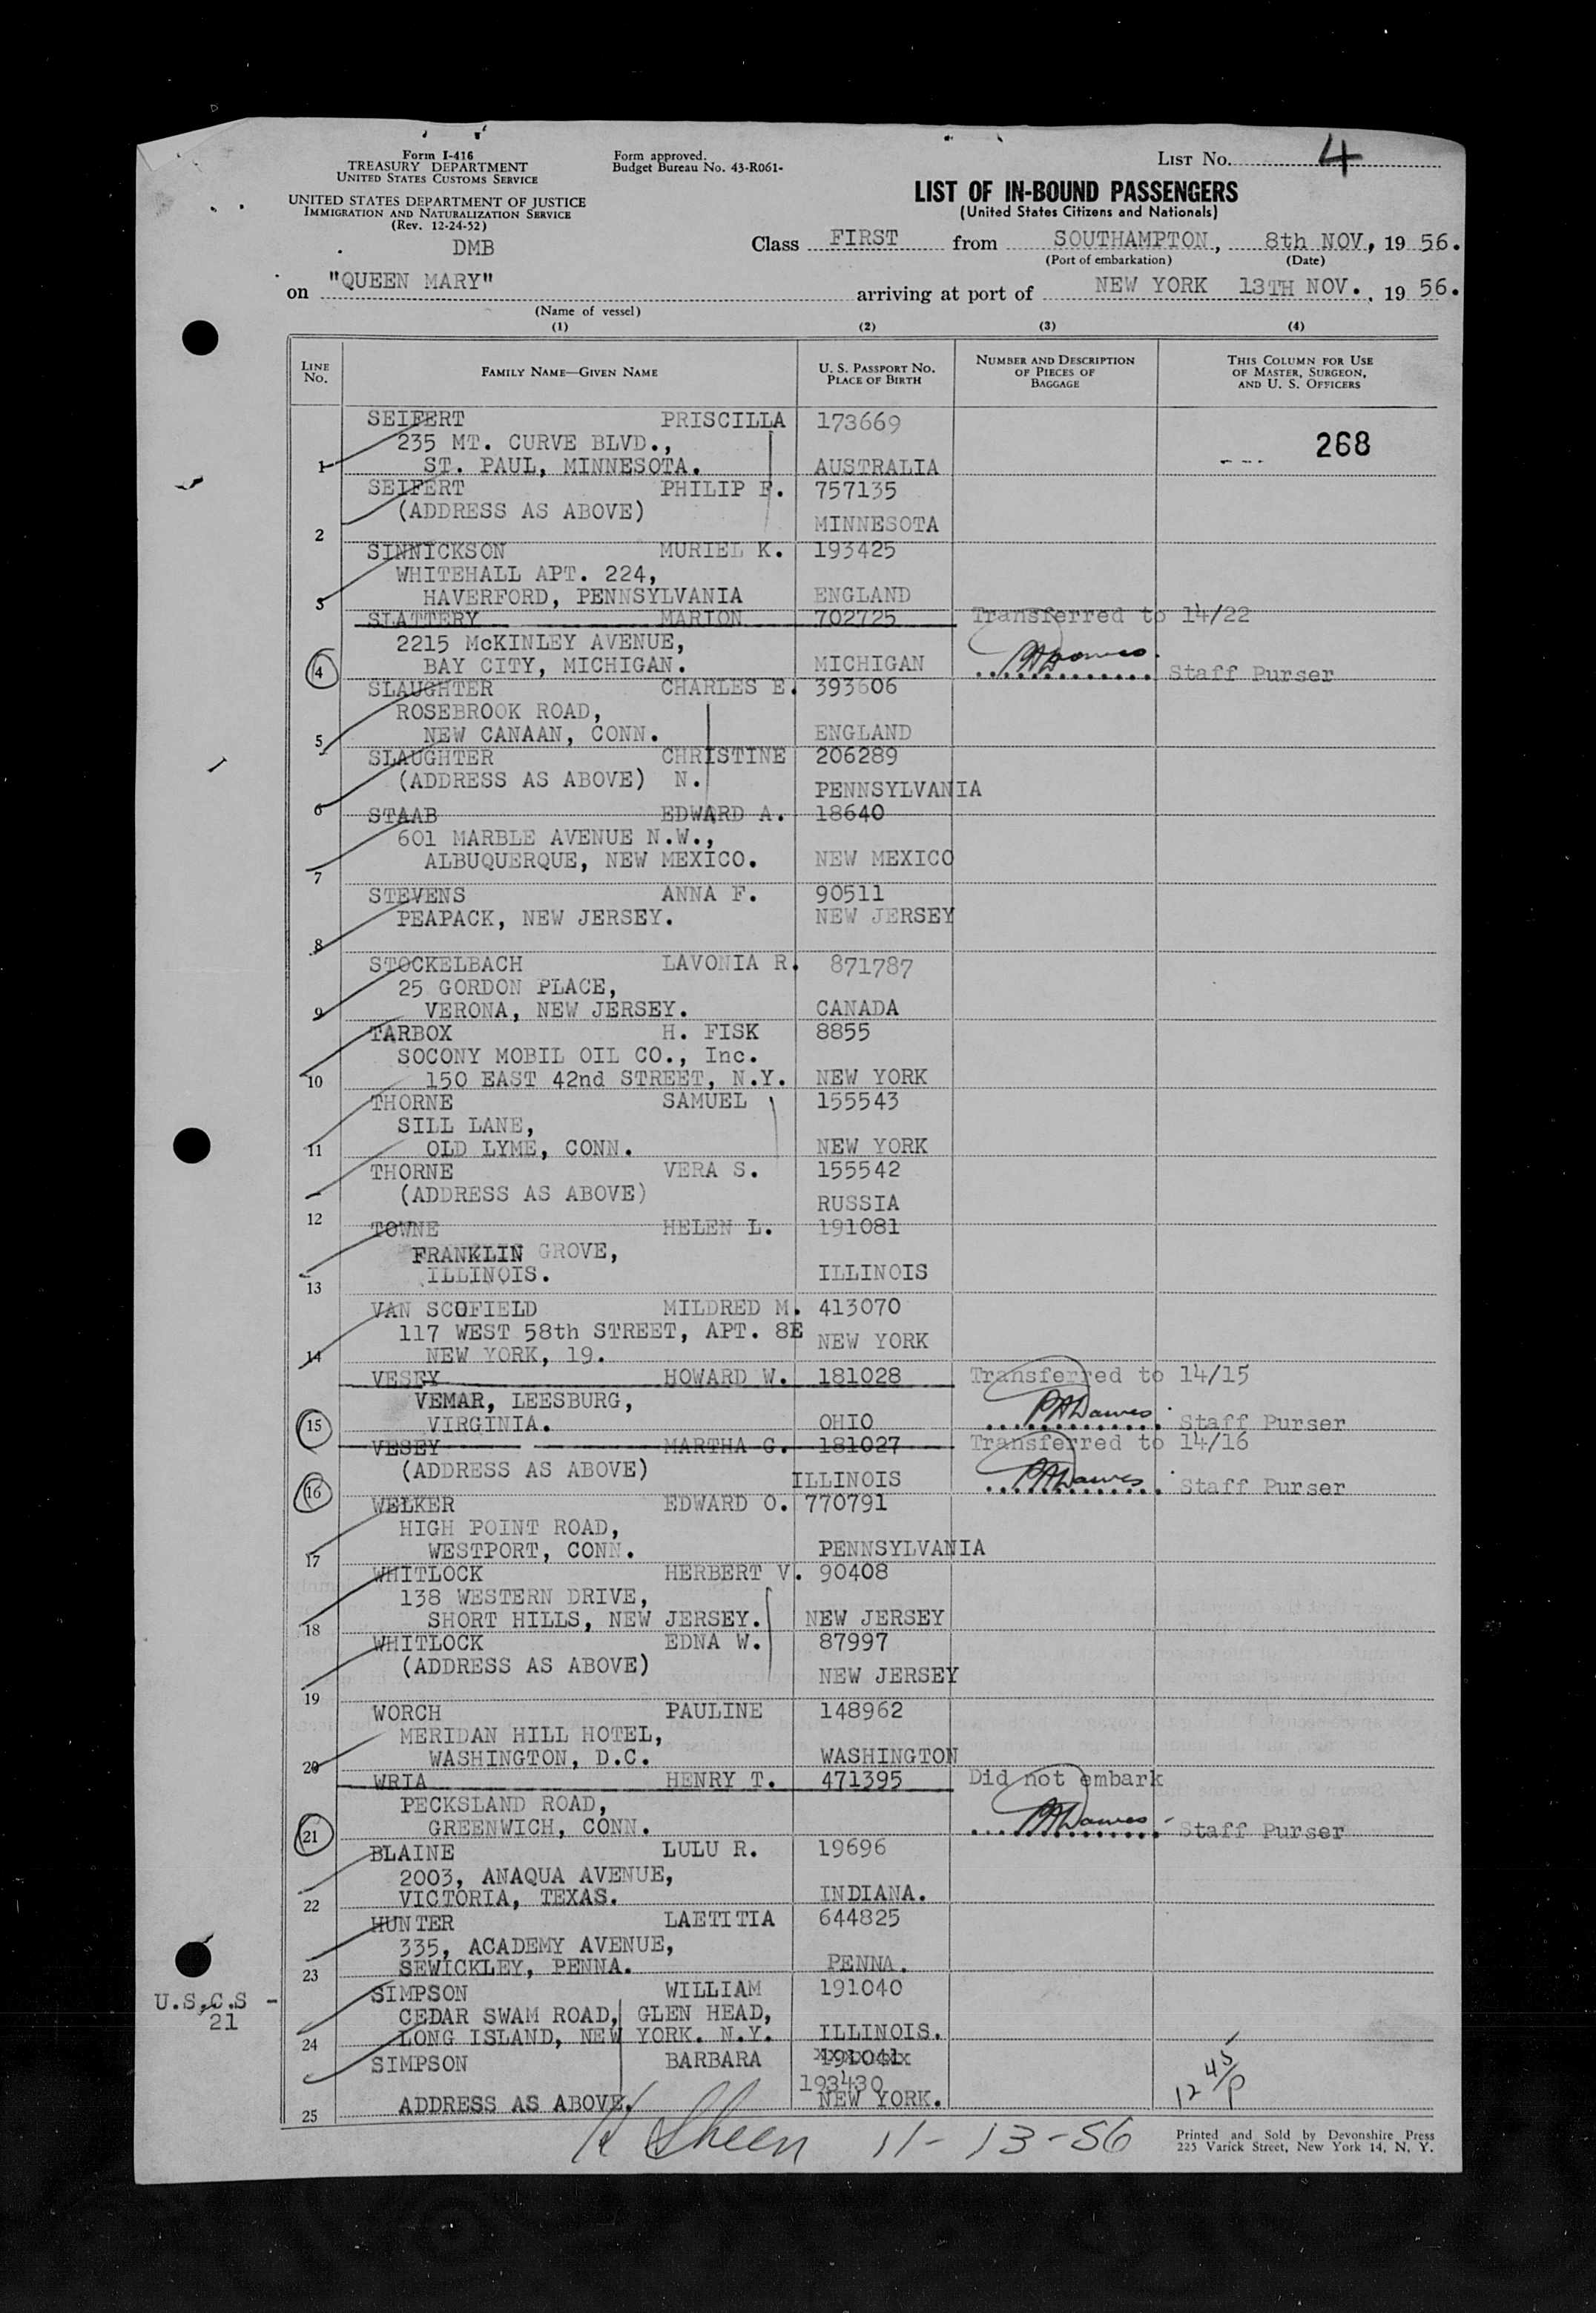 Form I-416
TREASURY DEPARTMENT
UNITED STATES CUSTOMS SERVICE
UNITED STATES DEPARTMENT OF JUSTICE
IMMIGRATION AND NATURALIZATION SERVICE
(Rev. 12-24-52)
DMB
Form approved.
Budget Bureau No. 43-R061-
LIST NO. 4
LIST OF IN-BOUND PASSENGERS
(United States Citizens and Nationals)
Class FIRST from SOUTHAMPTON, 8th NOV, 19 56.
(Port of embarkation) (Date)
on "QUEEN MARY" arriving at port of NEW YORK 13TH NOV. , 19 56.
(Name of vessel)
(1) (2) (3) (4)
LINE NO. FAMILY NAME—GIVEN NAME U. S. PASSPORT NO. PLACE OF BIRTH NUMBER AND DESCRIPTION OF PIECES OF BAGGAGE THIS COLUMN FOR USE OF MASTER, SURGEON, AND U. S. OFFICERS
SEIFERT PRISCILLA 173669
235 MT. CURVE BLVD., 268
1 ST. PAUL, MINNESOTA. AUSTRALIA
SEIFERT PHILIP F. 757135
(ADDRESS AS ABOVE)
2 MINNESOTA
SINNICKSON MURIEL K. 193425
WHITEHALL APT. 224,
3 HAVERFORD, PENNSYLVANIA ENGLAND
SLATTERY MARION 702725 Transferred to 14/22
2215 McKINLEY AVENUE,
4 BAY CITY, MICHIGAN. MICHIGAN Staff Purser
SLAUGHTER CHARLES E. 393606
ROSEBROOK ROAD,
5 NEW CANAAN, CONN. ENGLAND
SLAUGHTER CHRISTINE 206289
(ADDRESS AS ABOVE) N.
6 PENNSYLVANIA
STAAB EDWARD A. 18640
601 MARBLE AVENUE N.W.,
7 ALBUQUERQUE, NEW MEXICO. NEW MEXICO
STEVENS ANNA F. 90511
8 PEAPACK, NEW JERSEY. NEW JERSEY
STOCKELBACH LAVONIA R. 871787
25 GORDON PLACE,
9 VERONA, NEW JERSEY. CANADA
TARBOX H. FISK 8855
SOCONY MOBIL OIL CO., Inc.
10 150 EAST 42nd STREET, N.Y. NEW YORK
THORNE SAMUEL 155543
SILL LANE,
11 OLD LYME, CONN. NEW YORK
THORNE VERA S. 155542
(ADDRESS AS ABOVE)
12 RUSSIA
TOWNE HELEN L. 191081
FRANKLIN GROVE,
13 ILLINOIS. ILLINOIS
VAN SCOFIELD MILDRED M. 413070
117 WEST 58th STREET, APT. 8E NEW YORK
14 NEW YORK, 19.
VESEY HOWARD W. 181028 Transferred to 14/15
VEMAR, LEESBURG,
15 VIRGINIA. OHIO Staff Purser
VESEY MARTHA G. 181027 Transferred to 14/16
16 (ADDRESS AS ABOVE) ILLINOIS Staff Purser
WELKER EDWARD O. 770791
HIGH POINT ROAD,
17 WESTPORT, CONN. PENNSYLVANIA
WHITLOCK HERBERT V. 90408
138 WESTERN DRIVE,
18 SHORT HILLS, NEW JERSEY. NEW JERSEY
WHITLOCK EDNA W. 87997
(ADDRESS AS ABOVE)
19 NEW JERSEY
WORCH PAULINE 148962
MERIDAN HILL HOTEL,
20 WASHINGTON, D.C. WASHINGTON
WRIA HENRY T. 471395 Did not embark
PECKSLAND ROAD,
21 GREENWICH, CONN. Staff Purser
BLAINE LULU R. 19696
2003, ANAQUA AVENUE,
22 VICTORIA, TEXAS. INDIANA.
HUNTER LAETITIA 644825
335, ACADEMY AVENUE,
23 SEWICKLEY, PENNA. PENNA.
SIMPSON WILLIAM 191040
U.S.C.S - 21
CEDAR SWAM ROAD, GLEN HEAD,
24 LONG ISLAND, NEW YORK. N.Y. ILLINOIS.
SIMPSON BARBARA 191041
193430
25 ADDRESS AS ABOVE. NEW YORK.
12 45/P
K Sheen 11-13-56
Printed and Sold by Devonshire Press
225 Varick Street, New York 14, N. Y.